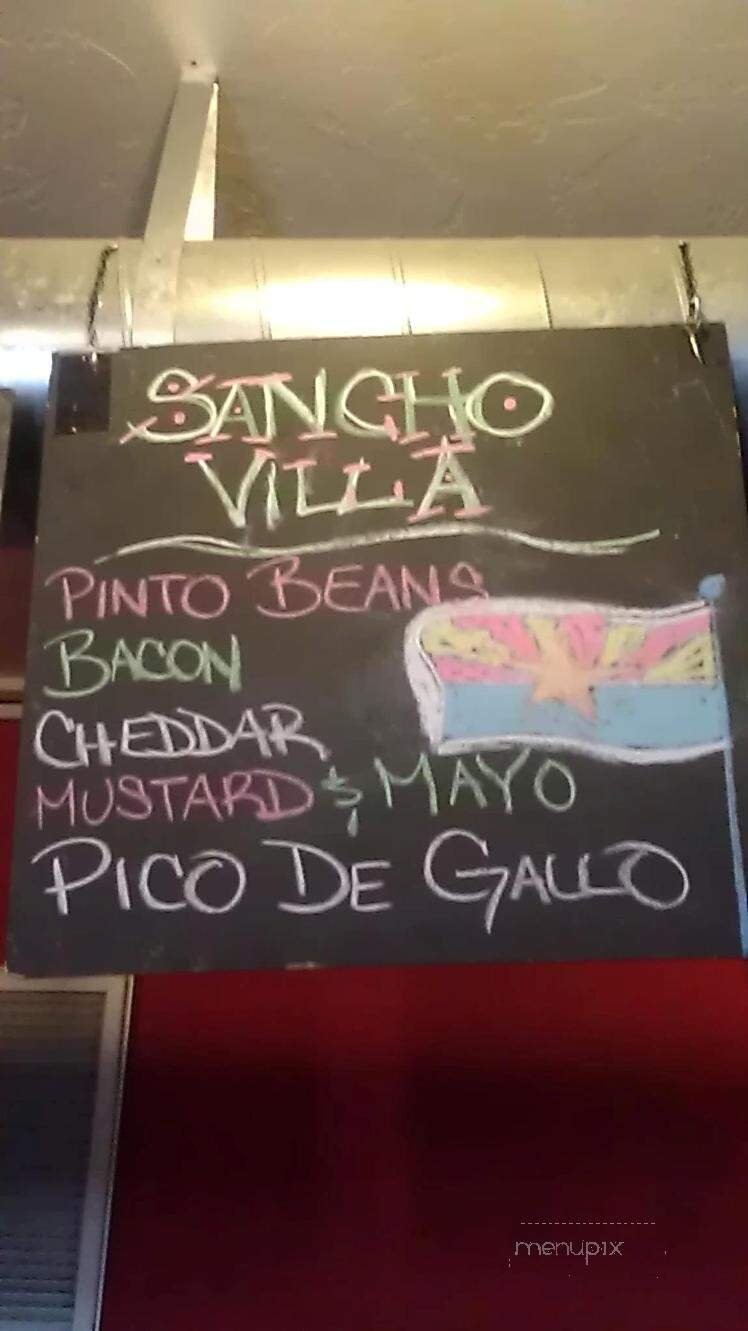 SANCHO
VILLA
PINTO BEANS
BACON
CHEDDAR
MUSTARD & MAYO
PICO DE GALLO
menupix